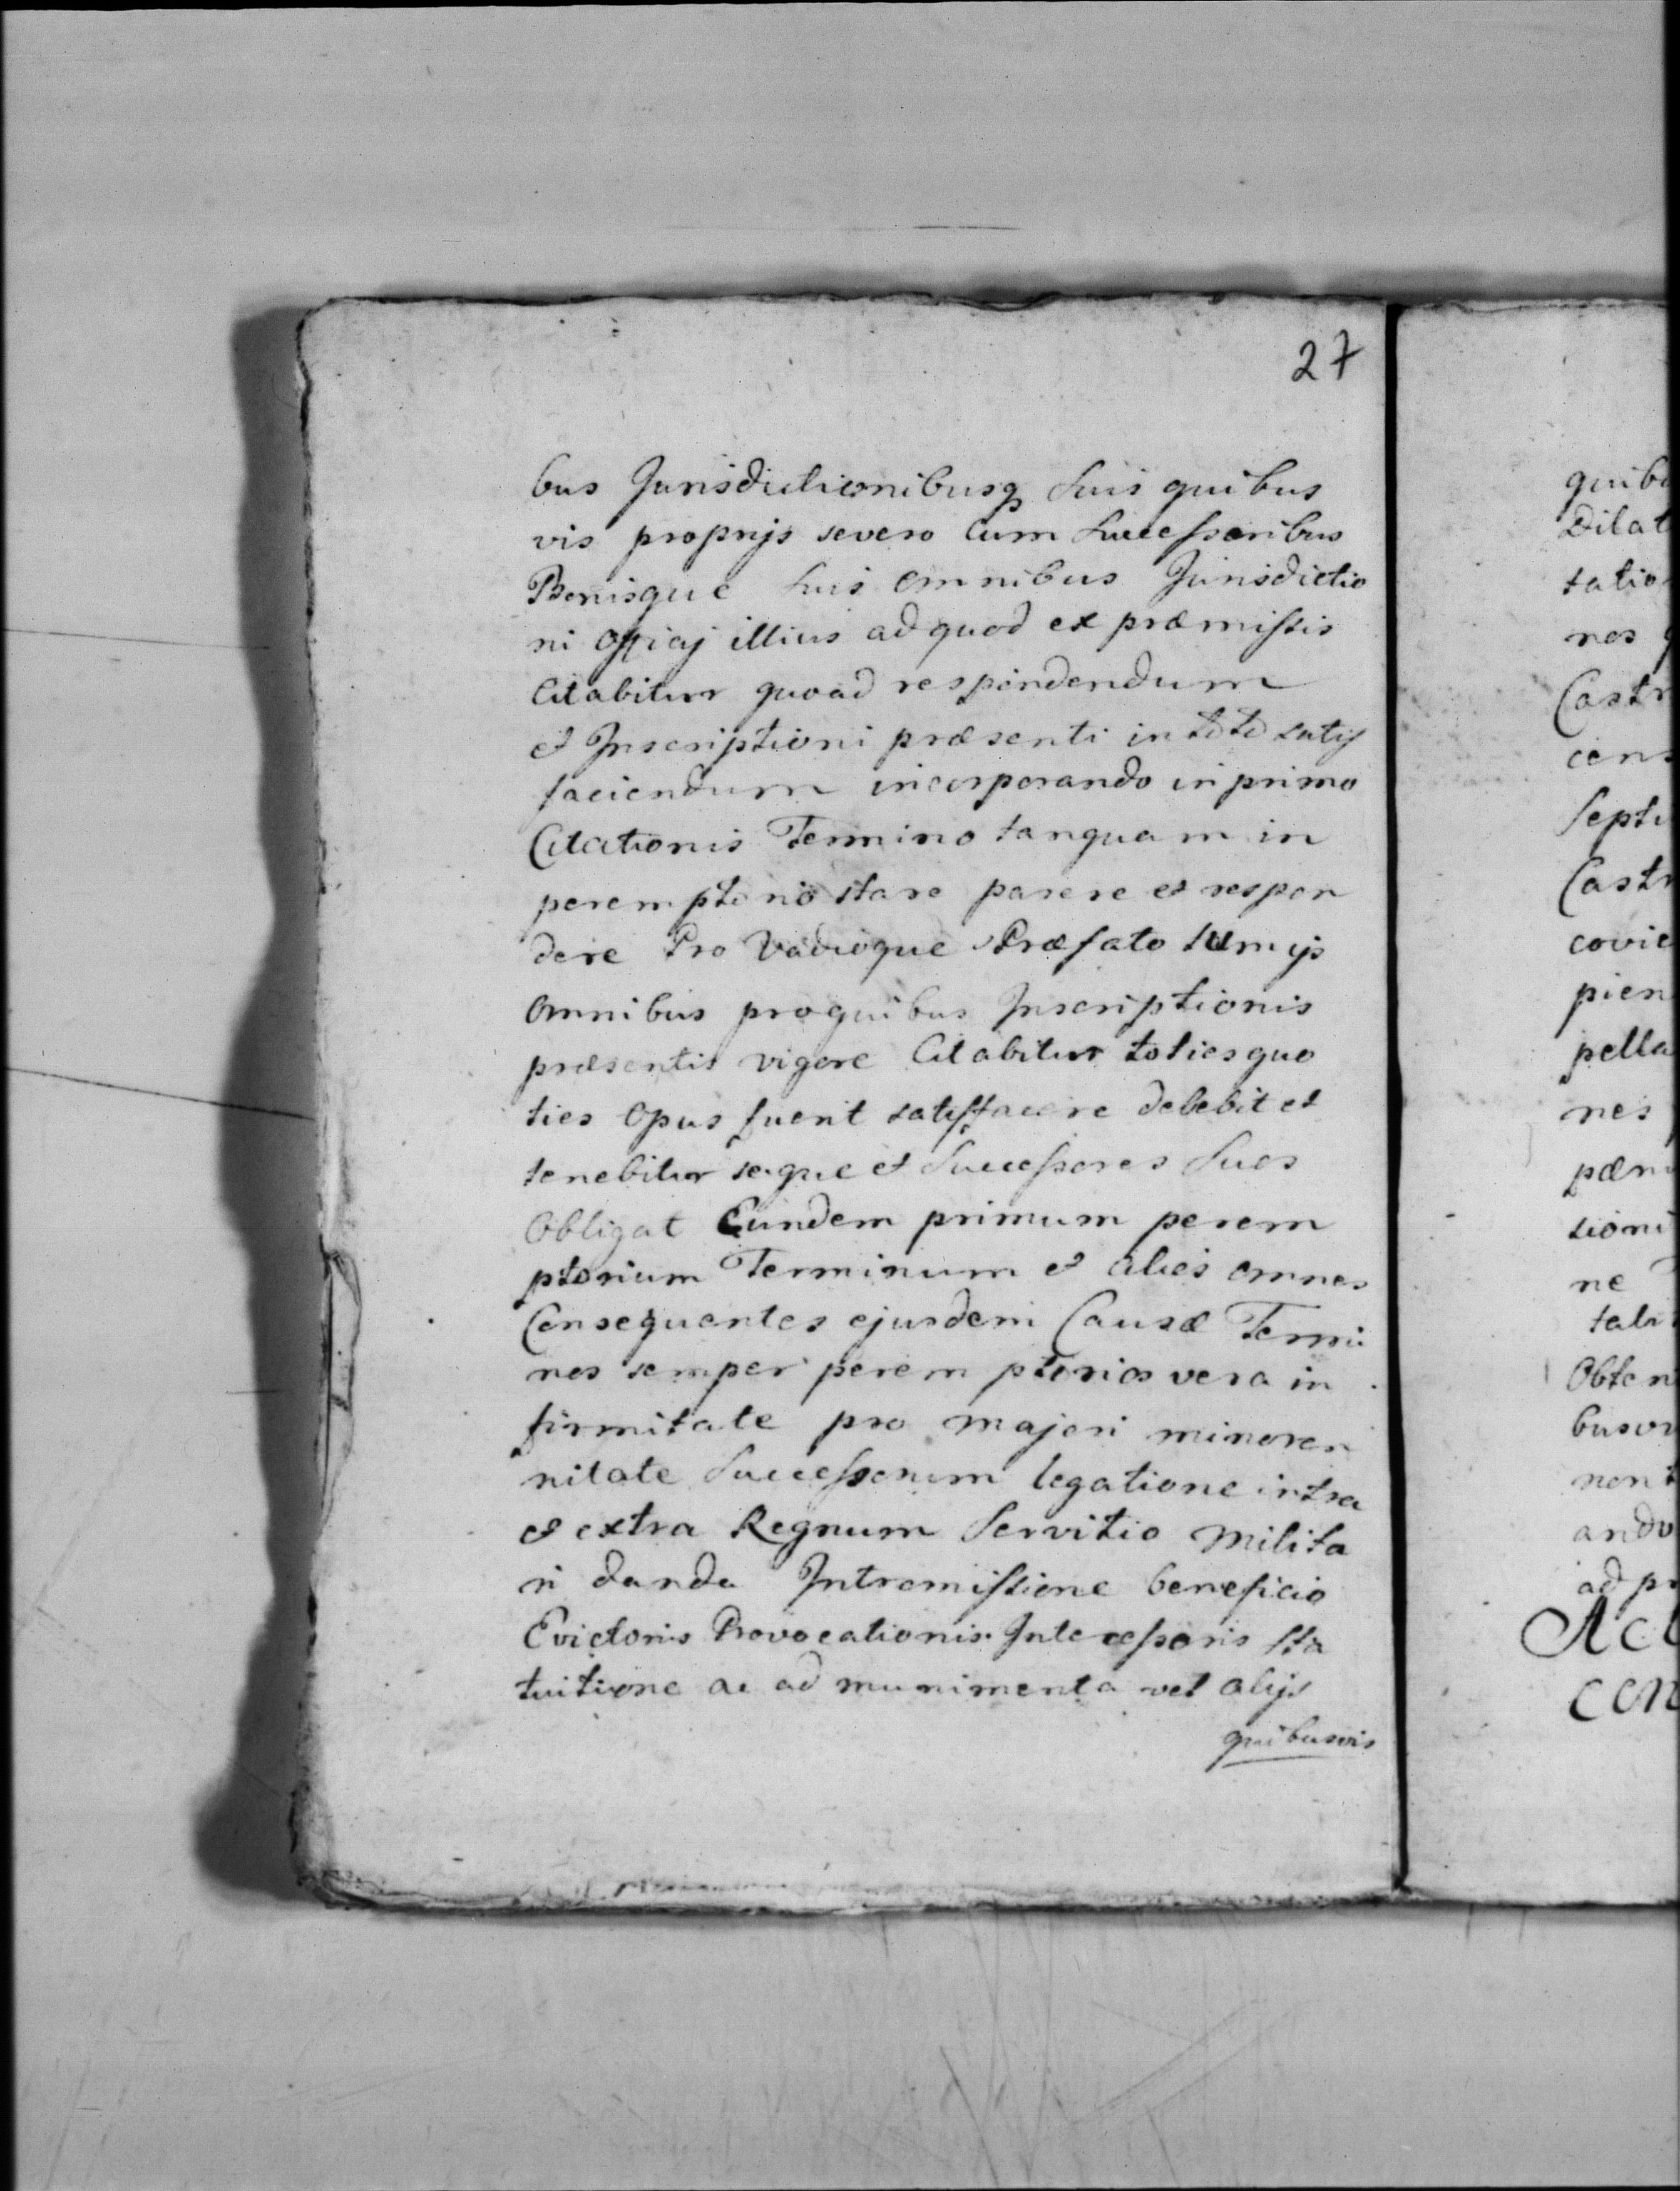 27
bus Jurisdictionibusq suis quibus
vis proprijs se vero cum Successoribus
Bonisque suis omnibus Jurisdictio
ni Officij illius ad quod ex præmissis
Citabitur quoad respondendum
et Inscriptioni præsenti in toto satis
faciendum incorporando in primo
Citationis Termino tanquam in
peremptorio stare parere et respon
dere Pro Vadioque Præfato tum ijs
omnibus pro quibus Inscriptionis
præsentis vigore Citabitur toties quo
ties opus fuerit satisfacere debebit et
tenebitur seque et Successores suos
Obligat Eundem primum perem
ptorium Terminum et alios omnes
Consequentes ejusdem Causæ Termi
nos semper peremptorios vera in
firmitate pro majori minoren
nitate Successorum legatione intra
et extra Regnum Servitio Milita
ri danda Intromissione beneficio
Evictoris Provocationis Intercessoris sta
tuitione ac ad munimenta vel alijs
quibusvis
quibu
Dilat
tatio
nos
Castr
cens
Septi
Castr
covie
pien
pella
nes
pæn
sioni
ne
tali
Obten
busvi
non
ando
ad pr
Act
con